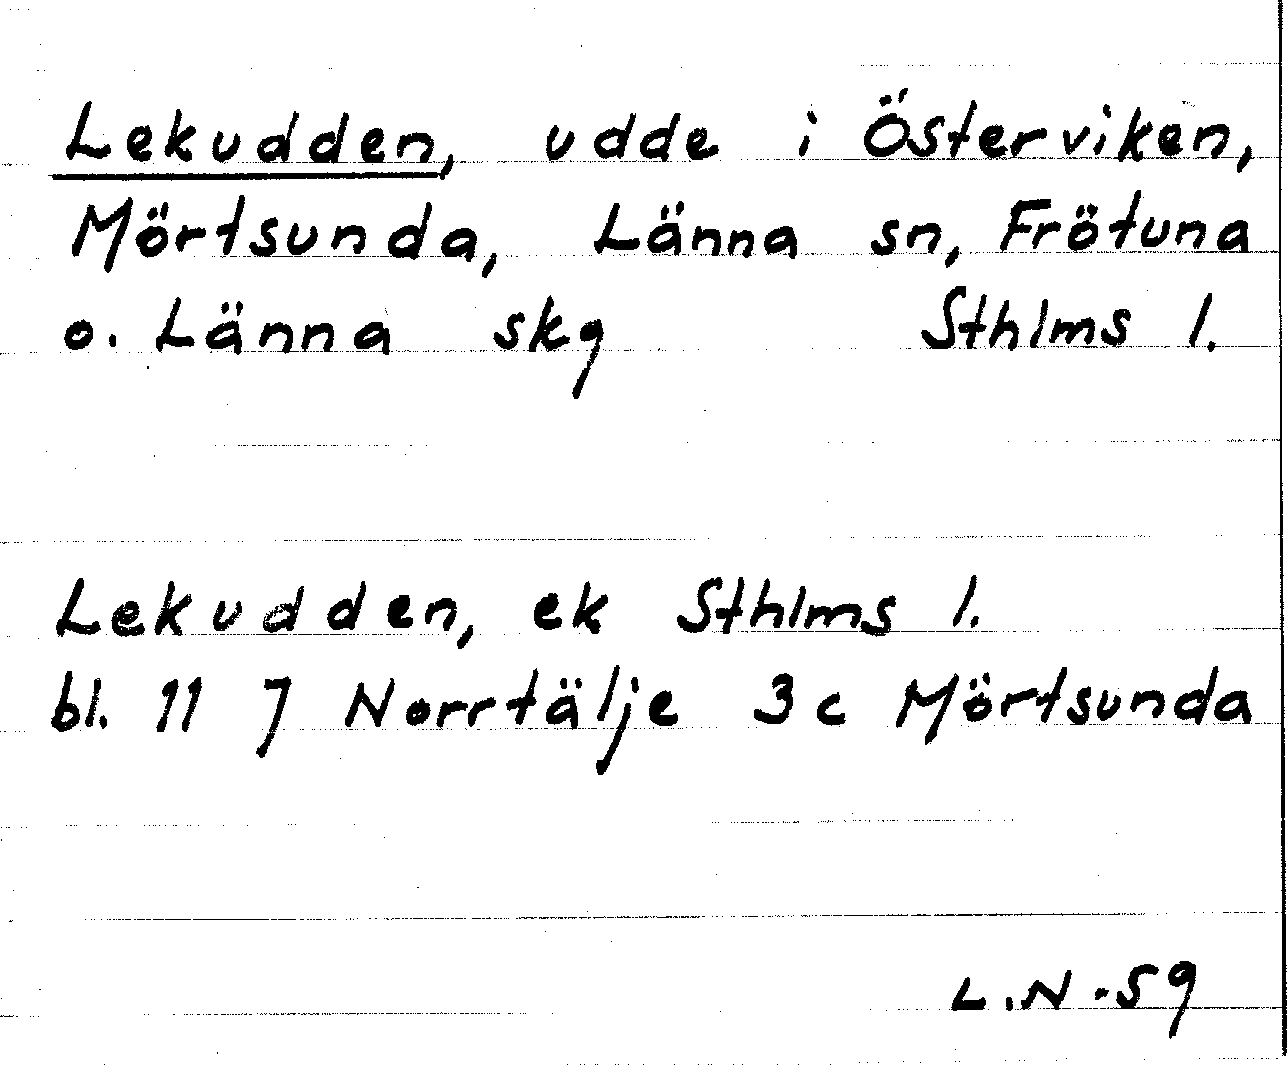 Lekudden, udde i Österviken,
Mörtsunda, Länna sn, Frötuna
o. Länna skg Sthlms l.
Lekudden, ek Sthlms l.
bl. 11 J Norrtälje 3c Mörtsunda
L.N-59